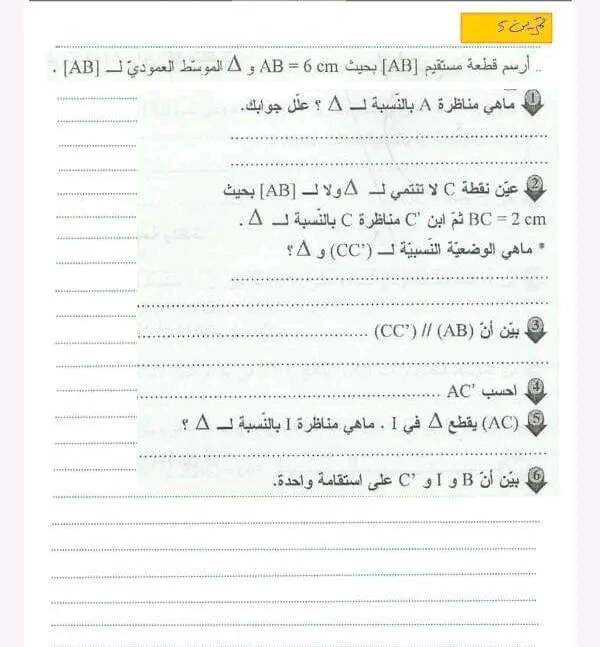 تمرين 5
.. أرسم قطعة مستقيم [AB] بحيث AB = 6 cm و Δ الموسّط العموديّ لـ [AB] .
1 ماهي مناظرة A بالنّسبة لـ Δ ؟ علّل جوابك.
2 عيّن نقطة C لا تنتمي لـ Δ ولا لـ [AB] بحيث
BC = 2 cm ثمّ ابن C' مناظرة C بالنّسبة لـ Δ .
* ماهي الوضعيّة النّسبيّة لـ (CC’) و Δ ؟
3 بيّن أنّ (AB) // (CC’)
4 احسب AC'
5 (AC) يقطع Δ في I . ماهي مناظرة I بالنّسبة لـ Δ ؟
6 بيّن أنّ B و I و C’ على استقامة واحدة.